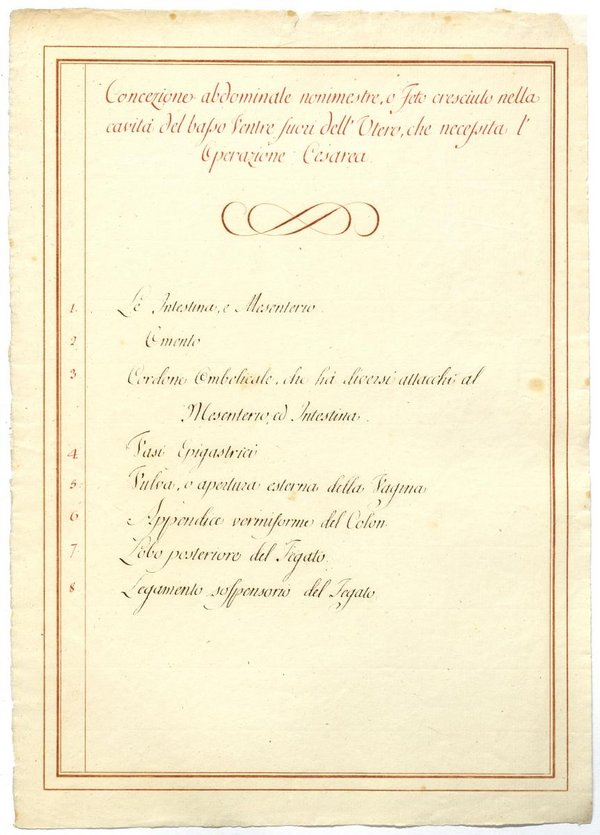 Concezione abdominale nonimestre, o Feto cresciuto nella
cavità del basso Ventre fuori dell' Utero, che necessita l'
Operazione Cesarea.
1. Le Intestina, e Mesenterio.
2 Omento
3 Cordone Ombelicale, che há diversi attacchi al
Mesenterio, ed Intestina.
4. Vasi Epigastrici
5. Vulva, o apertura esterna della Vagina
6 Appendice vermiforme del Colon
7 Lobo posteriore del Fegato.
8 Legamento sosspensorio del Fegato